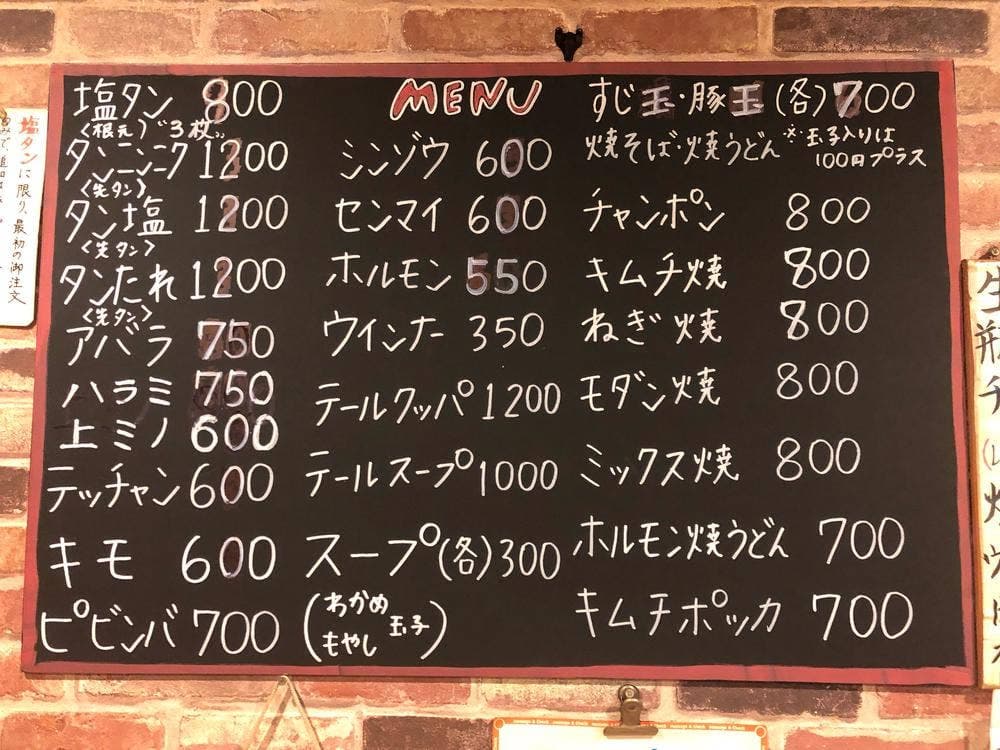 塩タン 800
〈根元〉"3枚"
タンニンニク 1200
〈先タン〉
タン塩 1200
〈先タン〉
タンたれ 1200
〈先タン〉
アバラ 750
ハラミ 750
上ミノ 600
テッチャン 600
キモ 600
ピビンバ 700
MENU
シンゾウ 600
センマイ 600
ホルモン 550
ウインナー 350
テールクッパ 1200
テールスープ 1000
スープ(各) 300
(わかめ
もやし 玉子)
すじ玉・豚玉(各) 700
焼そば・焼うどん ※玉子入りは
100円プラス
チャンポン 800
キムチ焼 800
ねぎ焼 800
モダン焼 800
ミックス焼 800
ホルモン焼うどん 700
キムチポッカ 700
塩タンに限り、最初の御注文